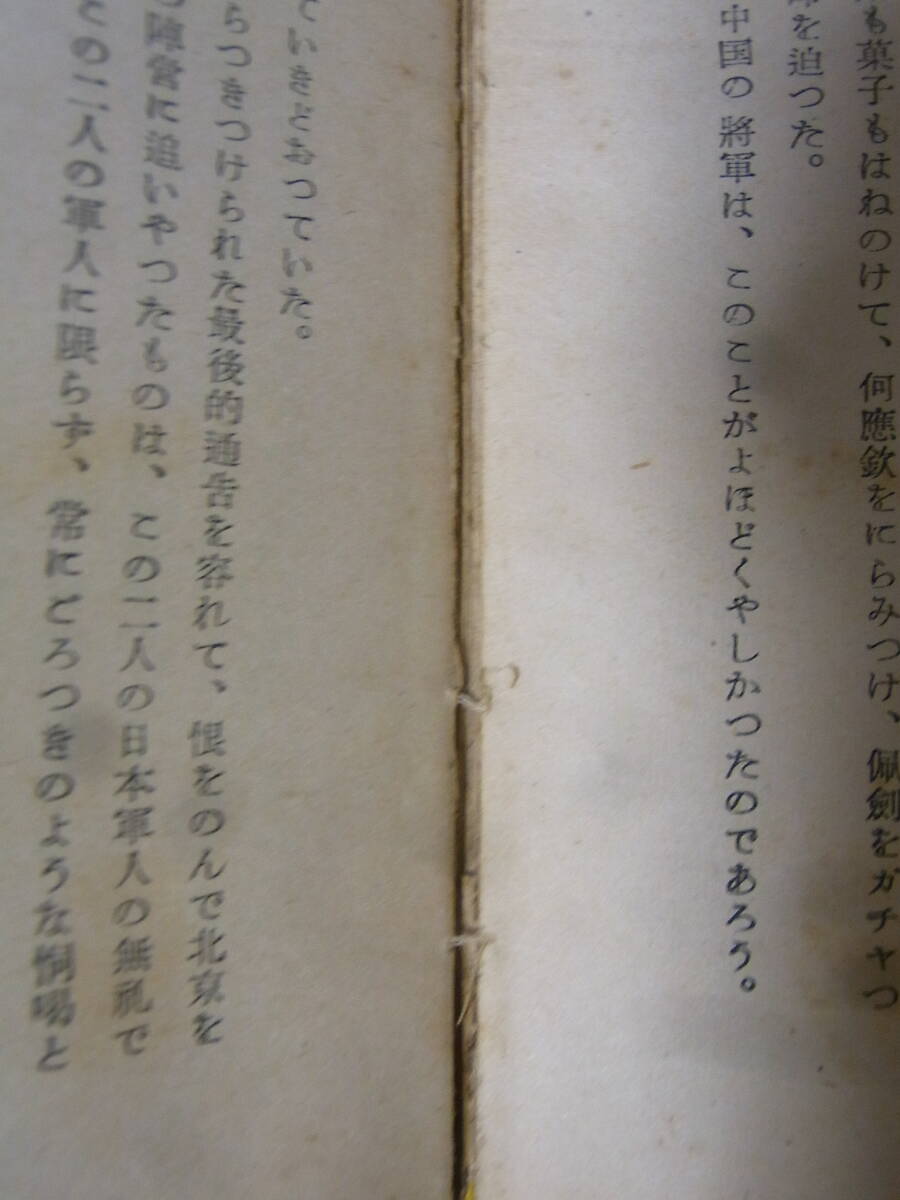 も菓子もはねのけて、何應欽をにらみつけ、佩劍をガチャつ
を迫つた。
中国の將軍は、このことがよほどくやしかつたのであろう。
ていきどおつていた。
らつきつけられた最後的通告を容れて、恨をのんで北京を
陣営に追いやつたものは、この二人の日本軍人の無礼で
この二人の軍人に限らず、常にごろつきのような恫喝と